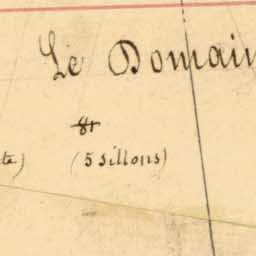 Le Domain
81
te) (5 sillons)